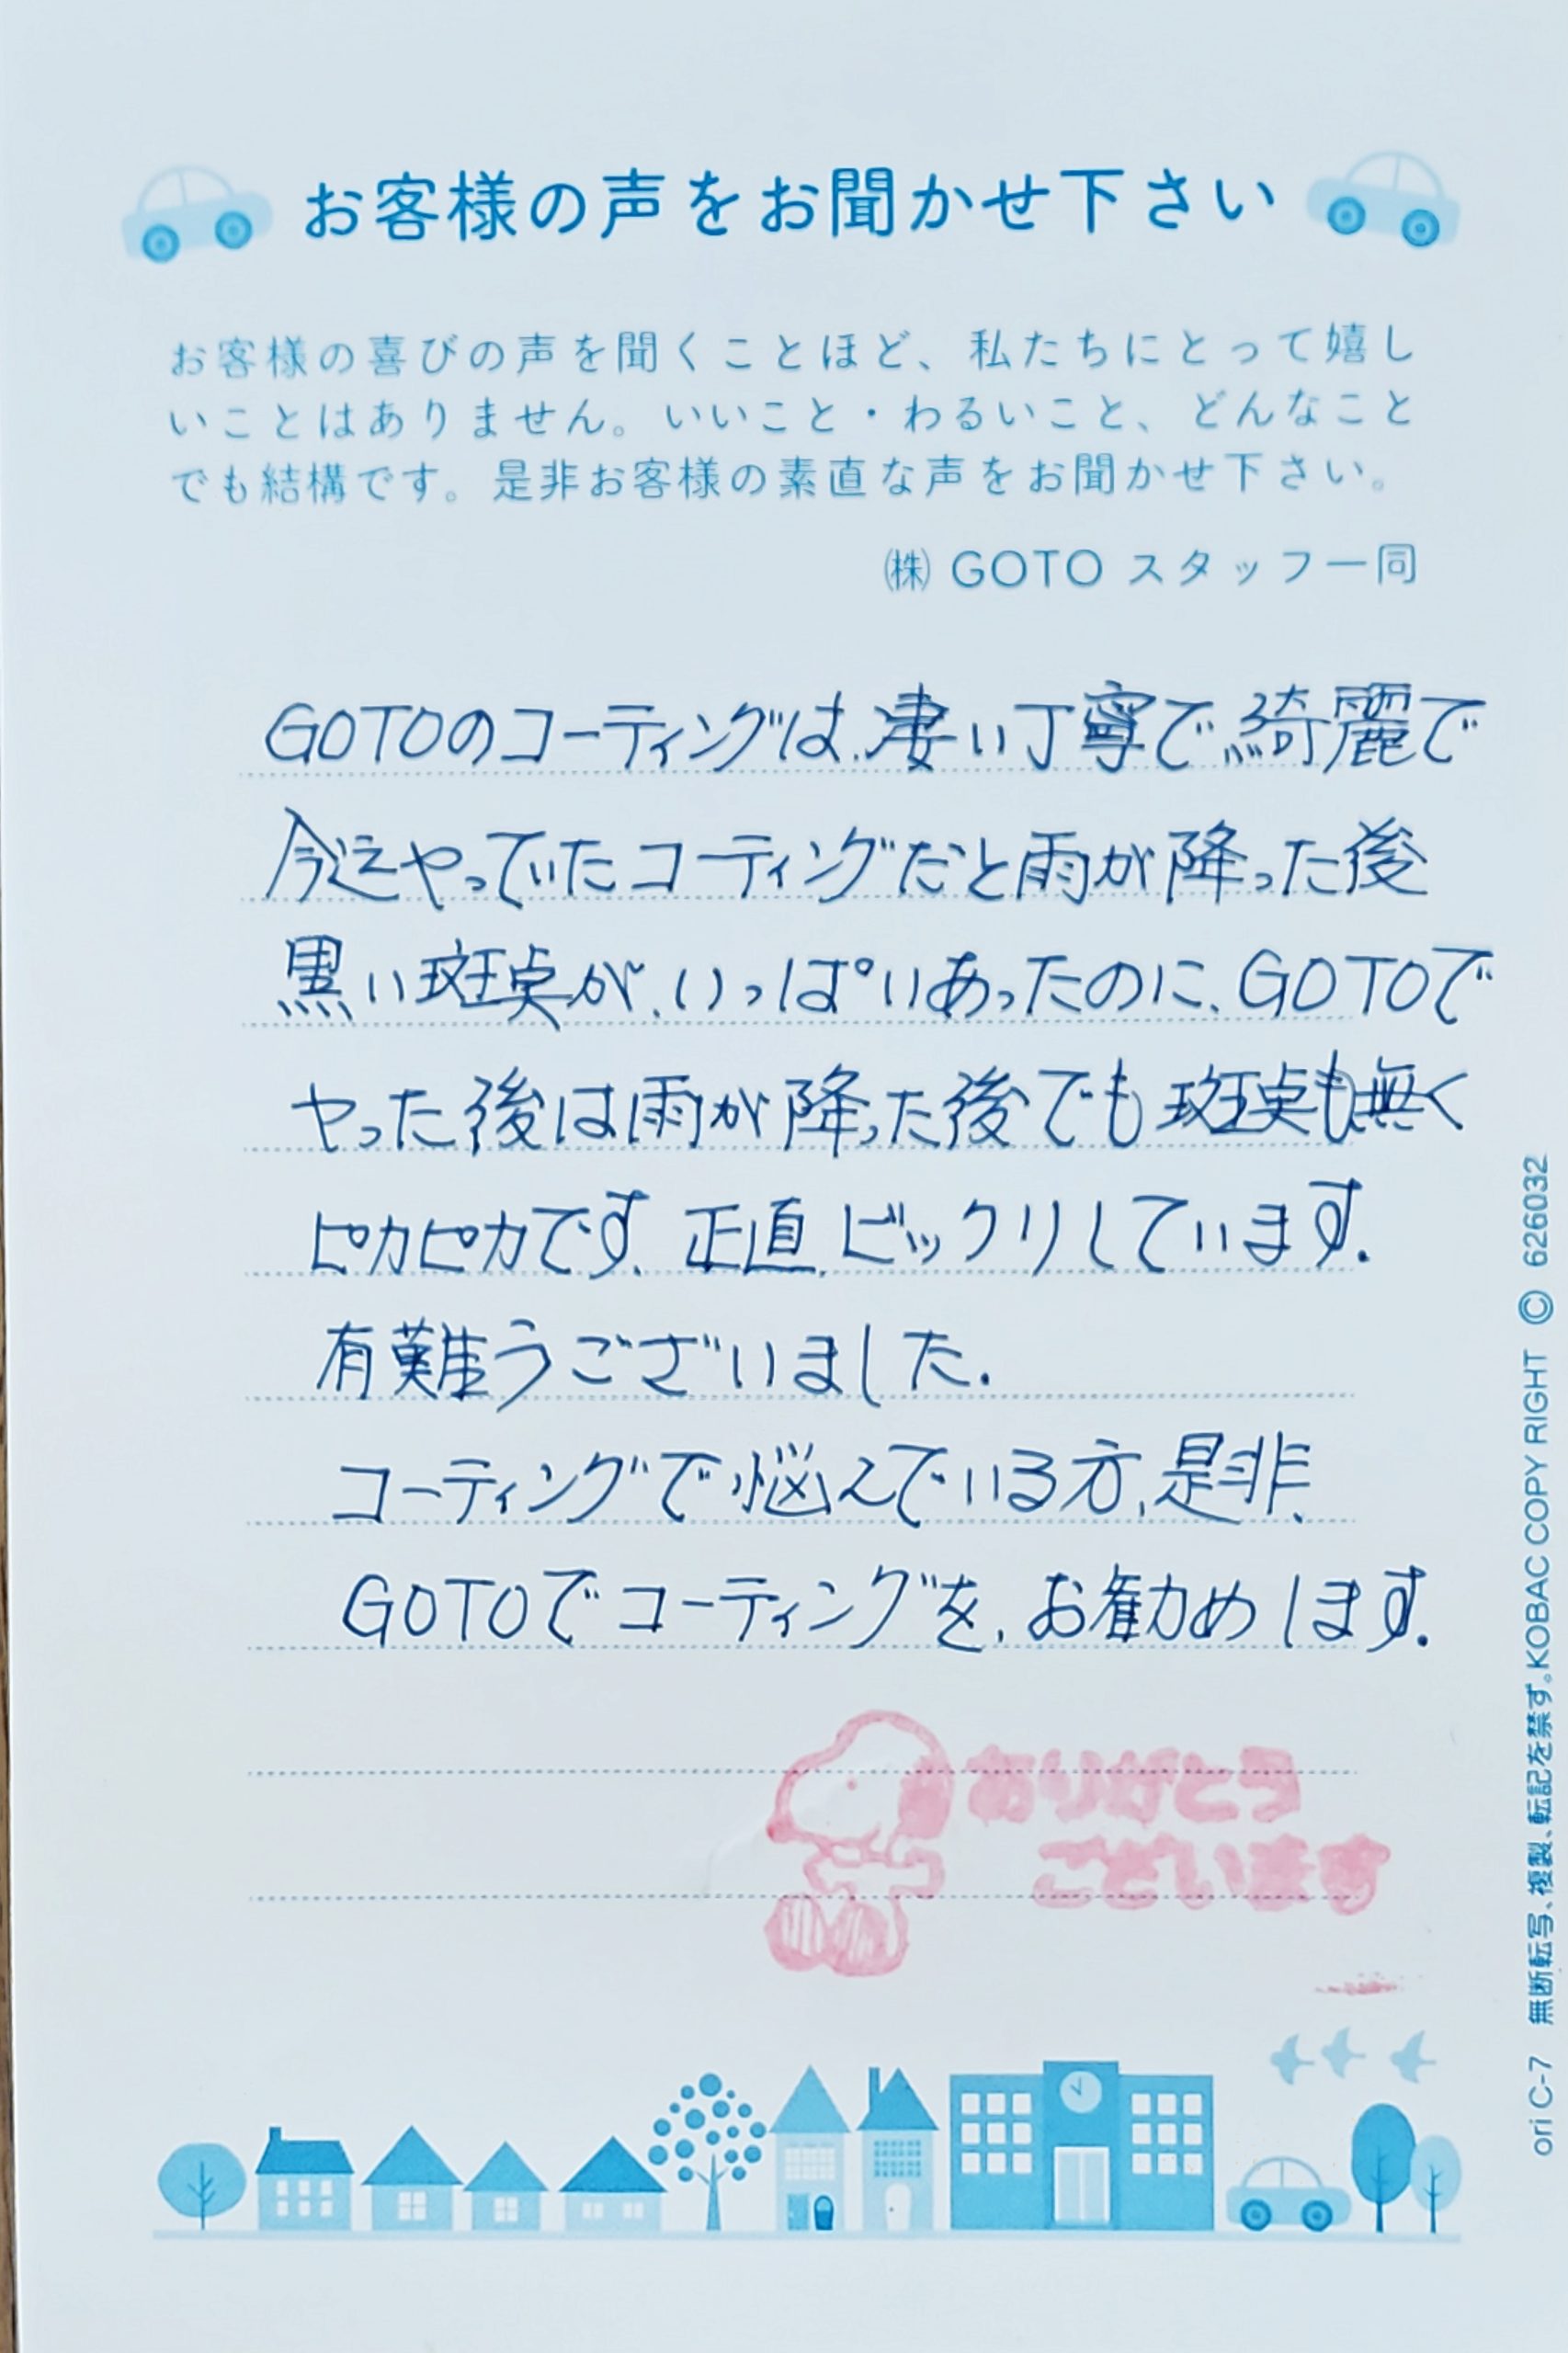 お客様の声をお聞かせ下さい
お客様の喜びの声を聞くことほど、私たちにとって嬉し
いことはありません。いいこと・わるいこと、どんなこと
でも結構です。是非お客様の素直な声をお聞かせ下さい。
㈱ GOTO スタッフ一同
GOTOのコーティングは、凄い丁寧で、綺麗で
今迄やっていたコーティングだと雨が降った後
黒い斑点が、いっぱいあったのに、GOTOで
やった後は雨が降った後でも斑点も無く
ピカピカです、正直、ビックリしています.
有難うございました.
コーティングで悩んでいる方、是非、
GOTOでコーティングを、お勧めします.
ありがとう
ございます
ori C-7 無断転写、複製、転記を禁ず。KOBAC COPY RIGHT © 626032